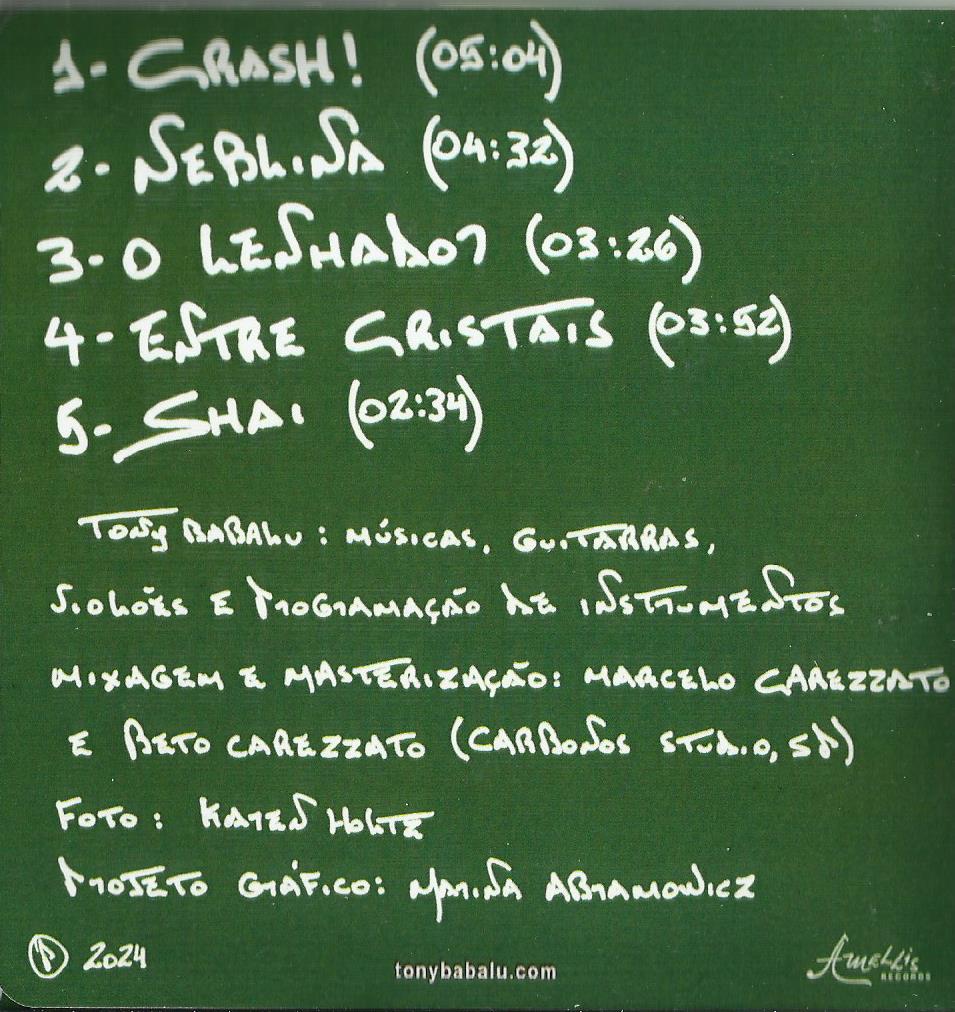 1- CRASH! (05:04)
2- NEBLINA (04:32)
3- O LENHADOR (03:26)
4- ENTRE CRISTAIS (03:52)
5- SHAI (02:34)
TONY BABALU: MÚSICAS, GUITARRAS,
VIOLÕES E PROGRAMAÇÃO DE INSTRUMENTOS
MIXAGEM E MASTERIZAÇÃO: MARCELO CAREZZATO
E BETO CAREZZATO (CARBONOS STUDIO, SP)
FOTO: KAREN HOLTZ
PROJETO GRÁFICO: MARINA ABRAMOWICZ
℗ 2024
tonybabalu.com
Amellis
RECORDS